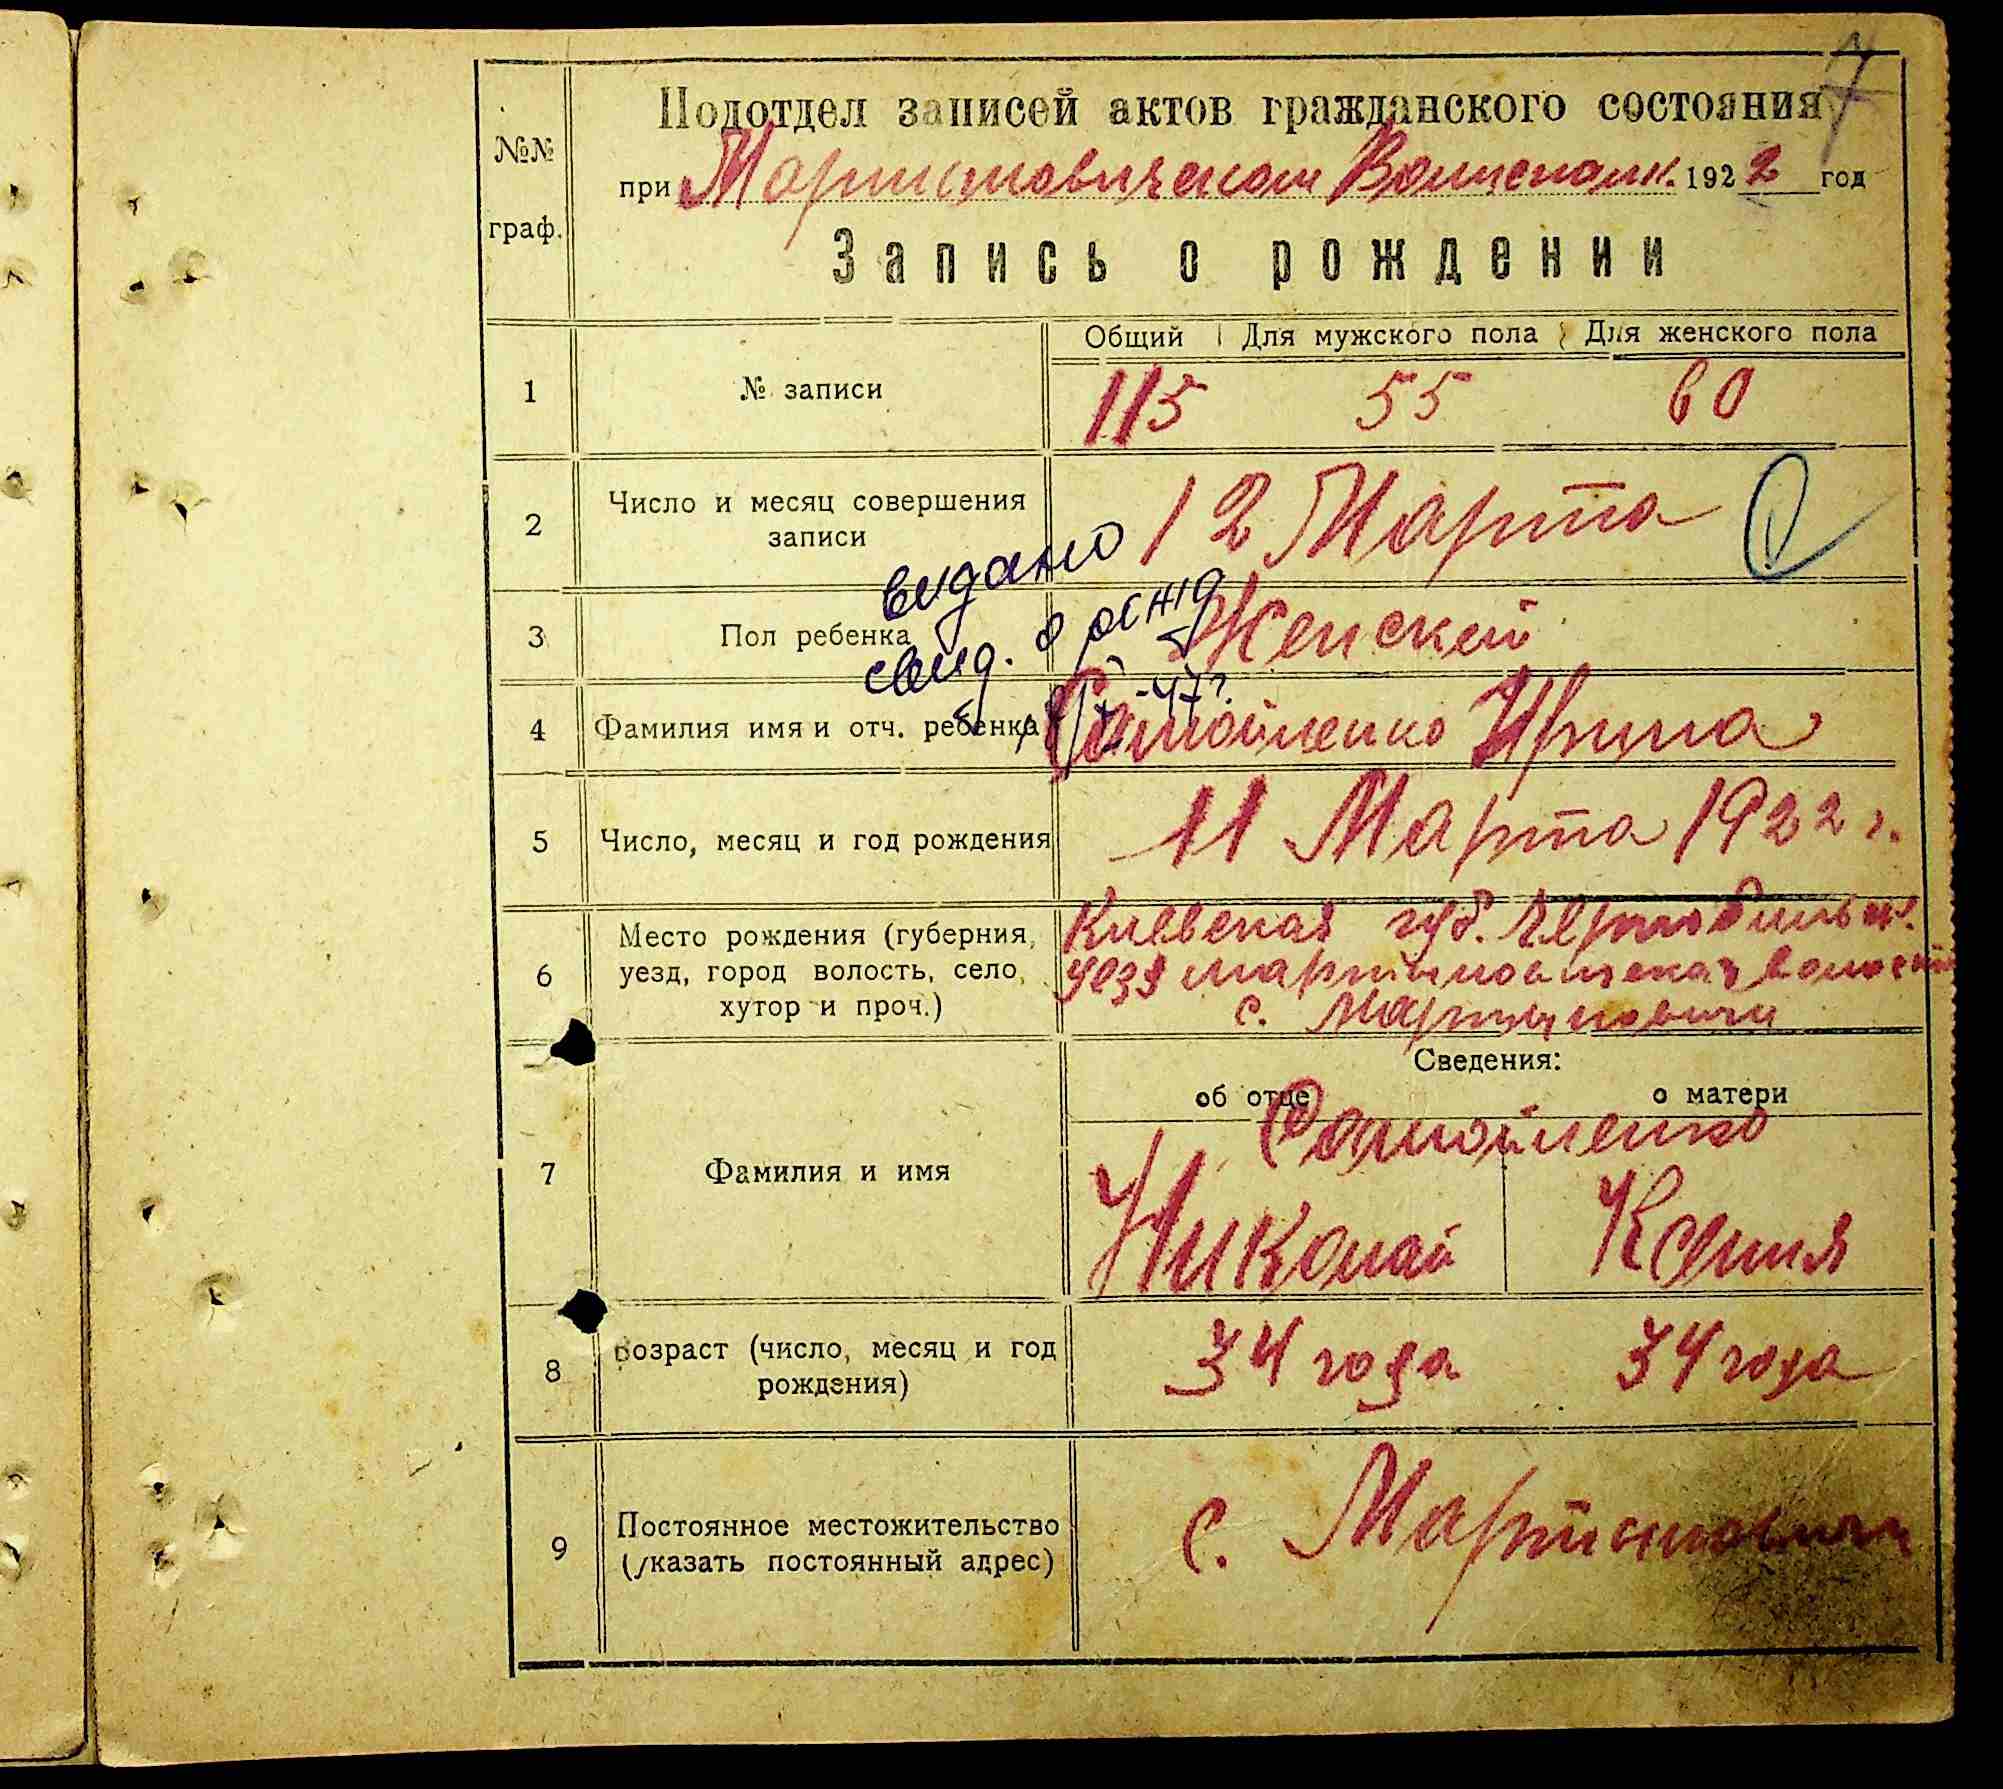 7
Подотдел записей актов гражданского состояния
№№ граф.
при Мартиновическом Волисполк. 1922 год
Запись о рождении
Общий Для мужского пола Для женского пола
1 № записи 115 55 60
2 Число и месяц совершения записи 12 Марта
видано
свид. о рожд
3 Пол ребенка Женский
4 Фамилия имя и отч. ребенка Самойленко Ирина
5 Число, месяц и год рождения 11 Марта 1922 г.
6 Место рождения (губерния, Киевская губ. Чернобильск.
уезд, город волость, село, уезд Мартиновическая волость
хутор и проч.) с. Мартиновичи
Сведения:
об отце о матери
Самойленко
7 Фамилия и имя Николай Ксения
8 Возраст (число, месяц и год рождения) 34 года 34 года
9 Постоянное местожительство (указать постоянный адрес) с. Мартиновичи